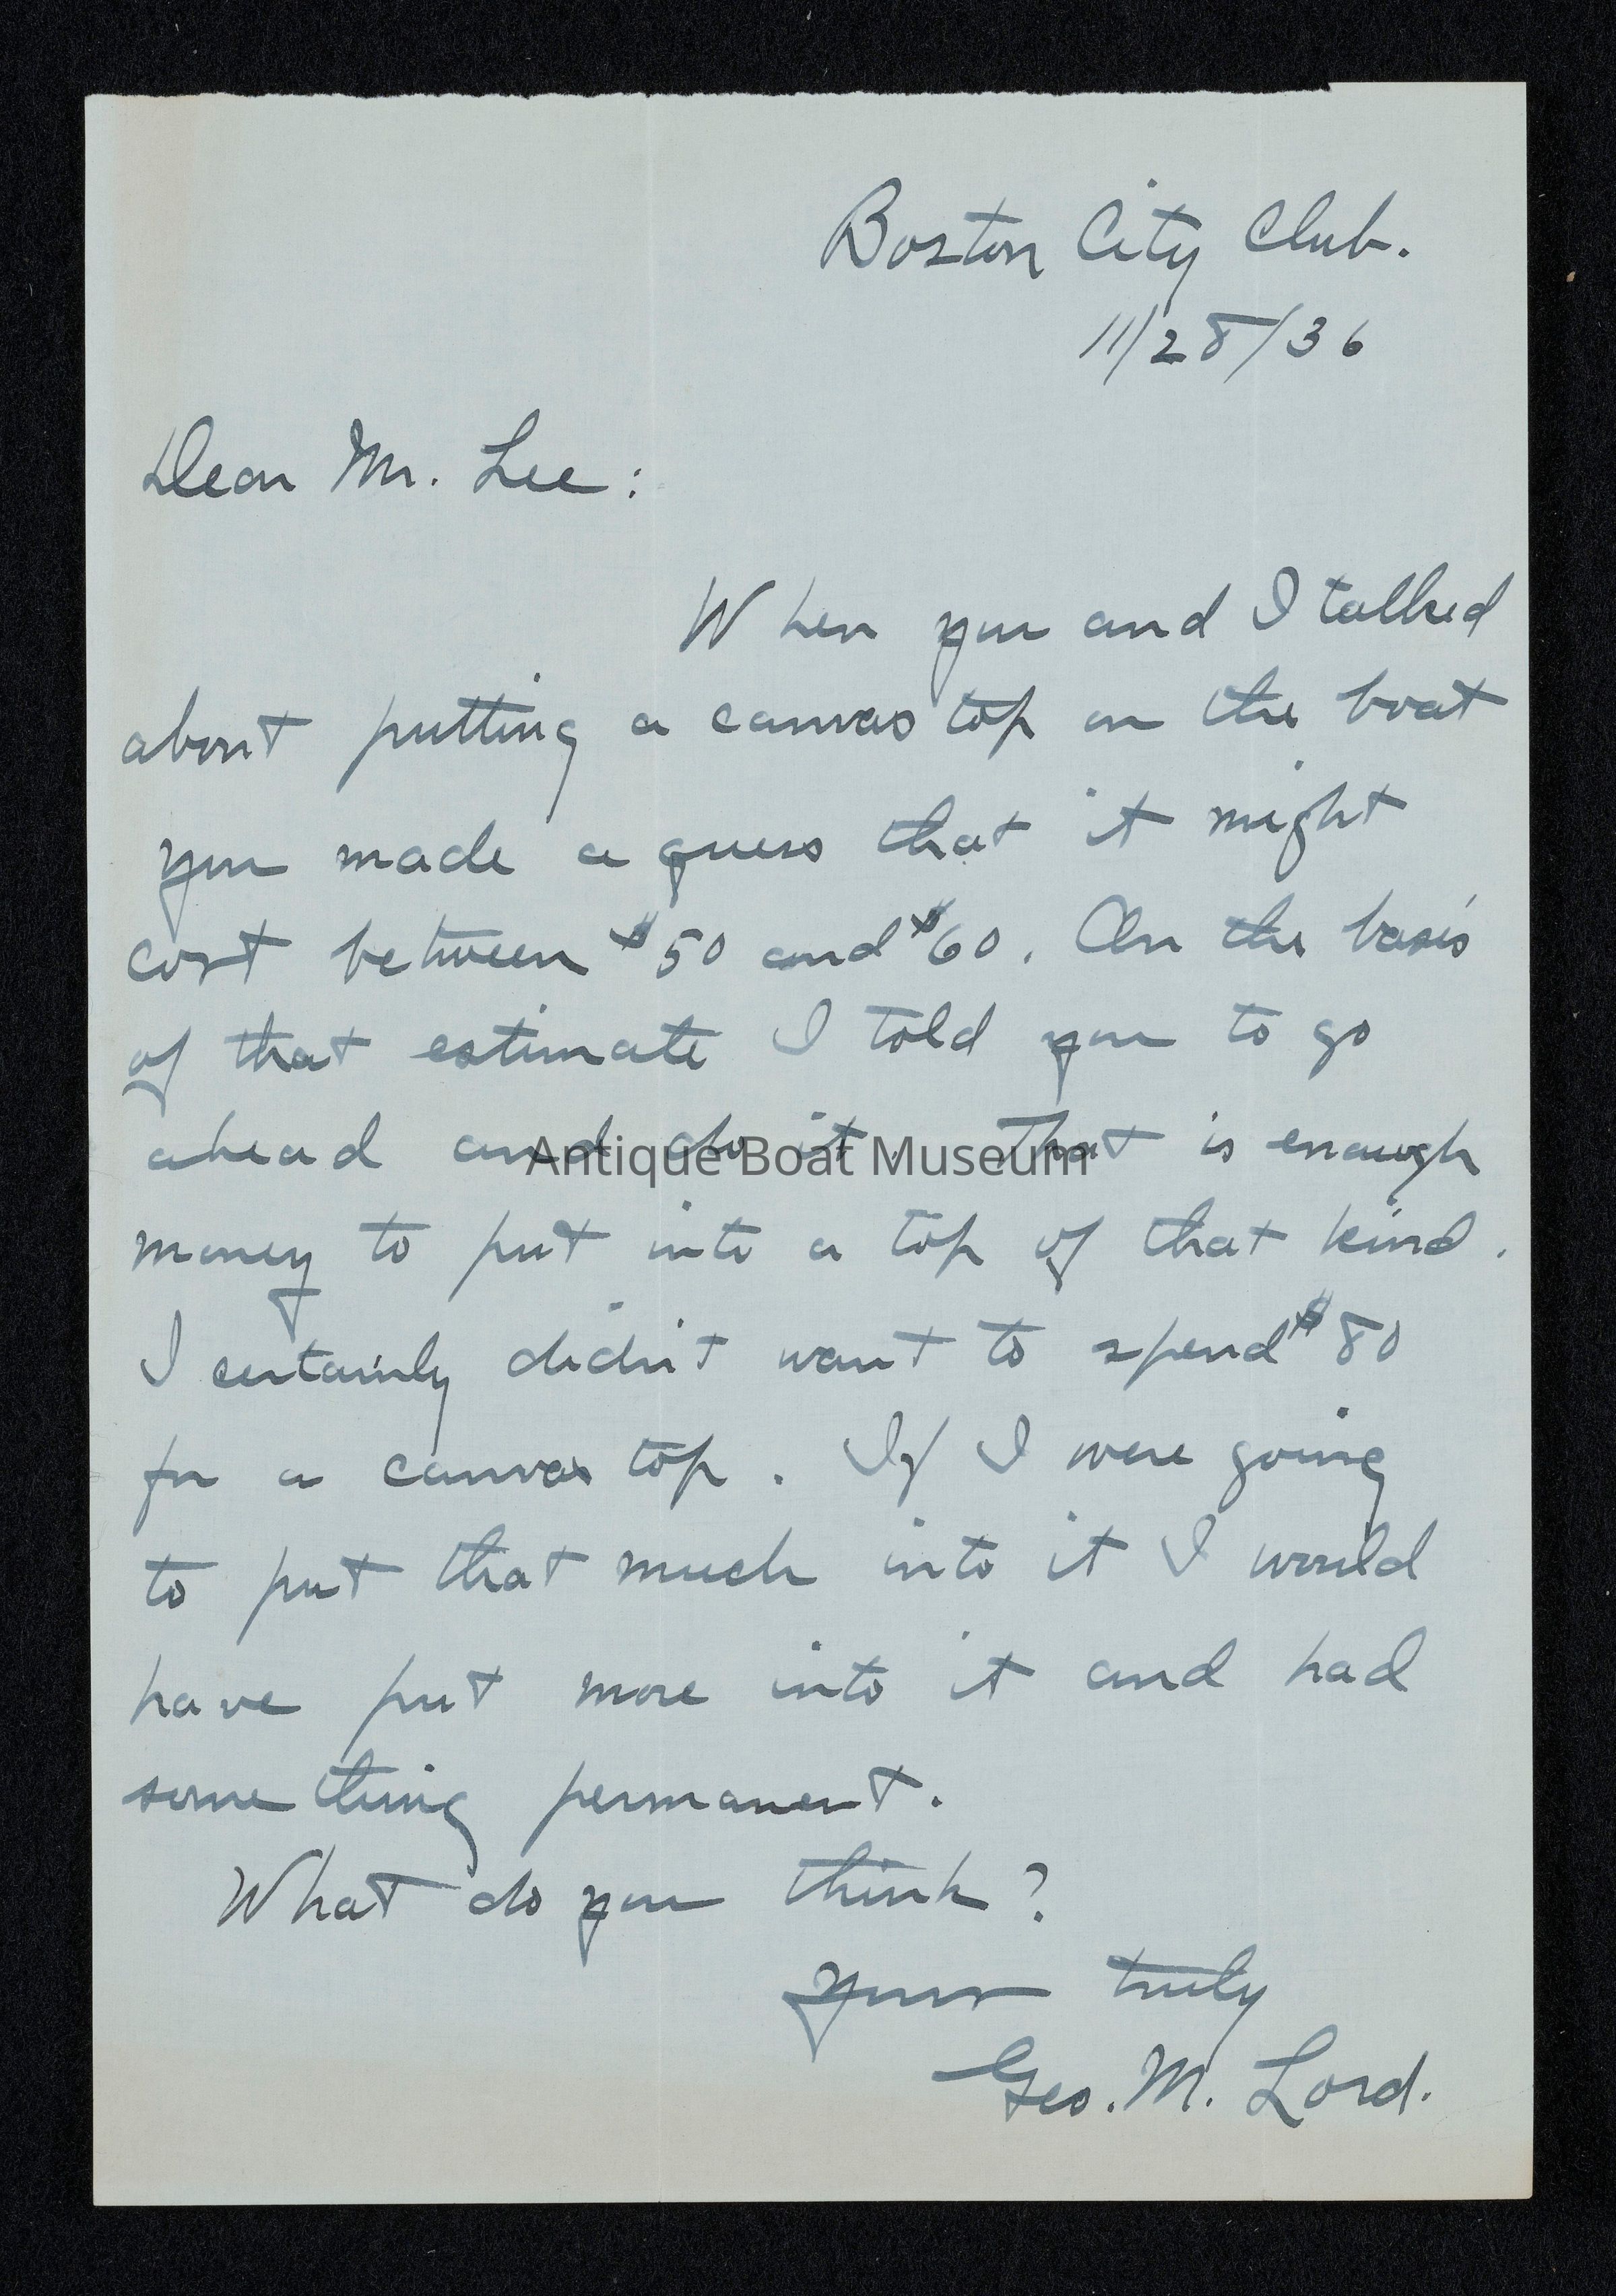 Boston City Club.
11/28/36
Dear Mr. Lee:
When you and I talked
about putting a canvas top on the boat
you made a guess that it might
cost between $50 and $60. On the basis
of that estimate I told you to go
ahead and do it. That is enough
Antique Boat Museum
money to put into a top of that kind.
I certainly didn't want to spend $80
for a canvas top. If I were going
to put that much into it I would
have put more into it and had
something permanent.
What do you think?
Yours truly
Geo. M. Lord.